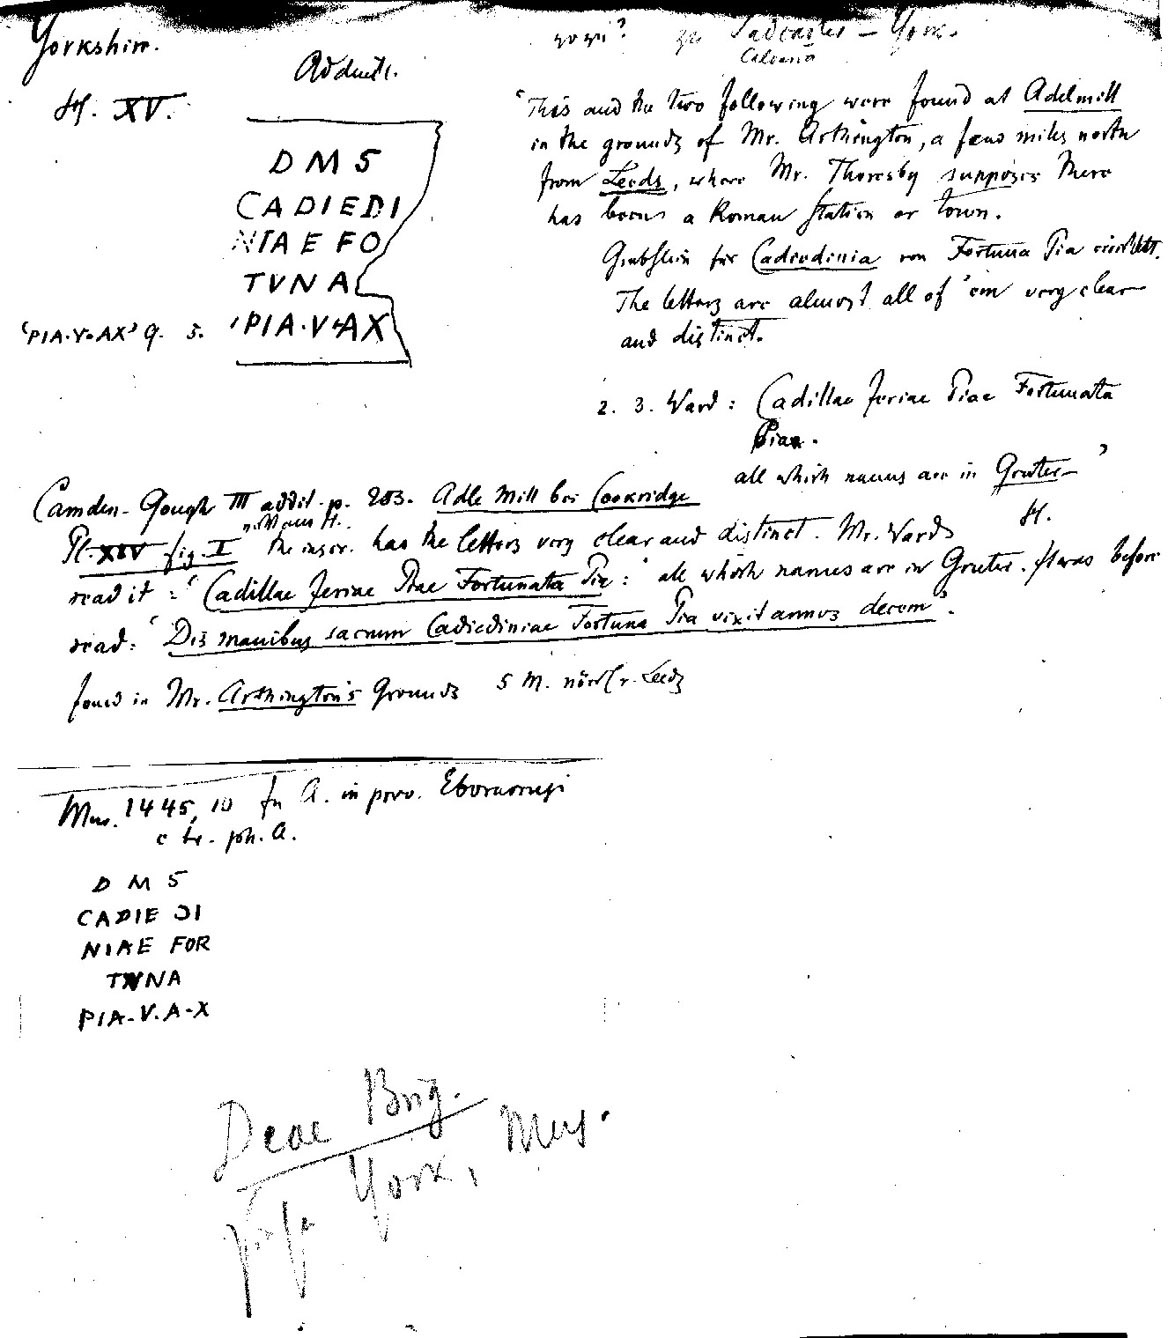 Yorkshire.
zu Tadcaster – York.
Calcaria
H. XV.
D M S
CADIEDI
NIAE FO
TVNA
PIA·V·AX
'PIA·V·AX' 9. 5.
'This and the two following were found at Adelmill
in the grounds of Mr. Arthington, a few miles north
from Leeds, where Mr. Thoresby supposes there
has been a Roman Station or town.
Grabstein für Cadiedinia von Fortuna Pia errichtet.
The letters are almost all of 'em very clear
and distinct.
2. 3. Ward: Cadillae Jeriae Piae Fortunata
Piae.
all which names are in Gruter–'
H.
Camden-Gough III addit. p. 283. Adle Mill bei Cookridge
Pl. XIV fig. I the inscr. has the letters very clear and distinct. Mr. Ward
read it: 'Cadillae Jeriae Piae Fortunata Pie:' all which names are in Gruter. It was before
read: 'Dis manibus sacrum Cadiediniae Fortuna Pia vixit annos decem'.
found in Mr. Arthington's Grounds 5 M. nördl. v. Leeds
Mus. 1445, 10 in A. in prov.
D M S
CADIE DI
NIAE FOR
TVNA
PIA-V.A-X
York, Mus.